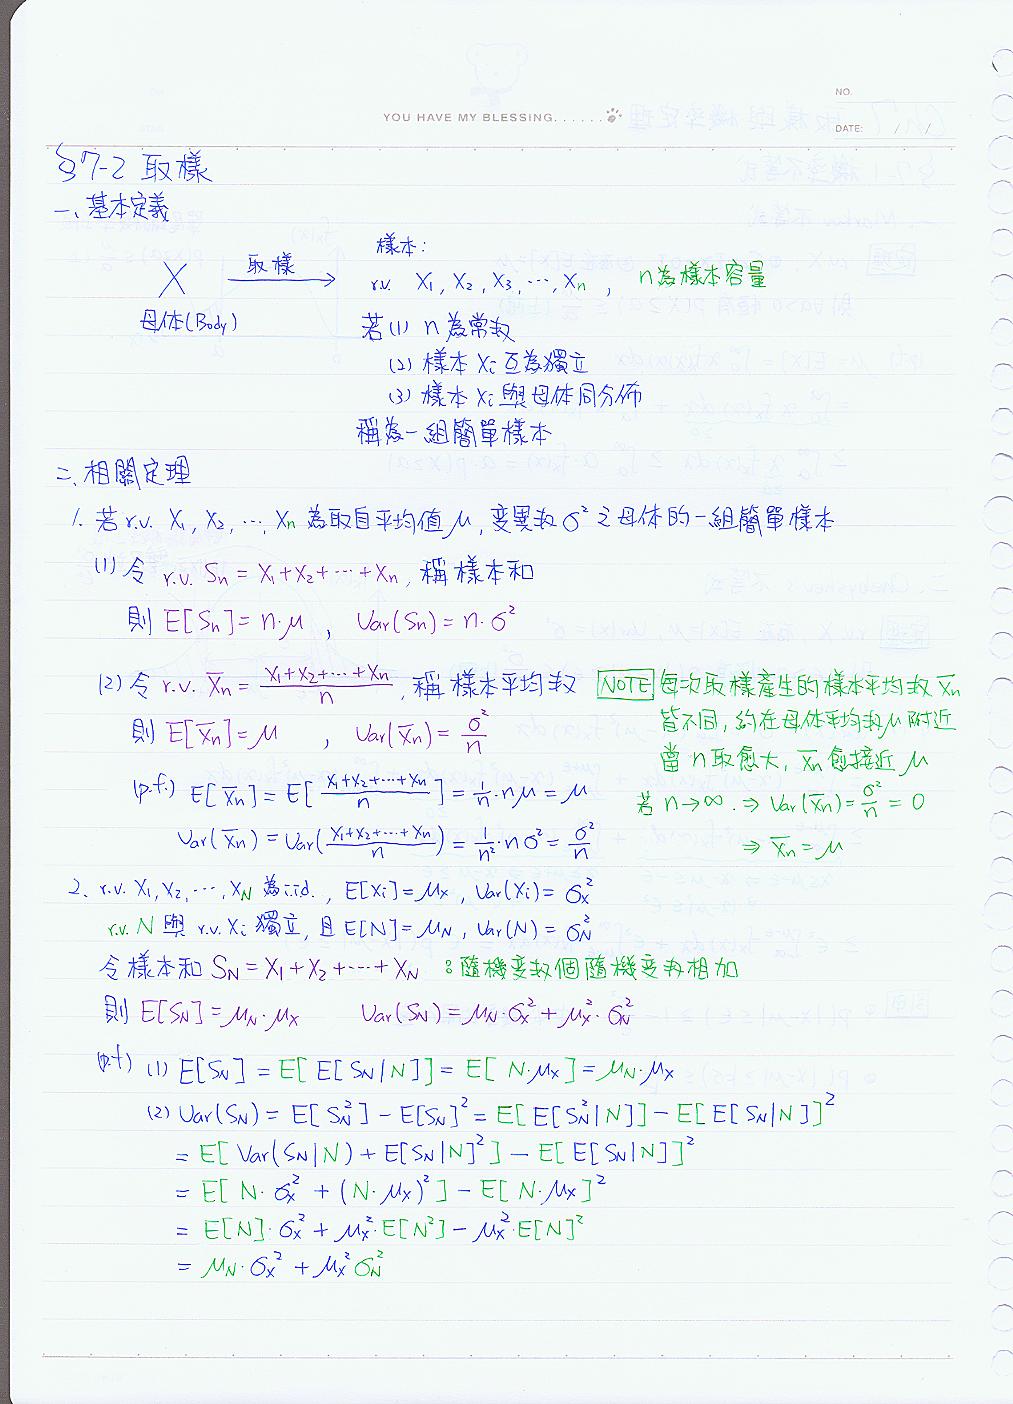 NO.
YOU HAVE MY BLESSING......
DATE: / /
§7-2 取樣
一、基本定義
X 取樣 → 樣本:
r.v. X₁, X₂, X₃, …, Xn , n為樣本容量
母体(Body)
若(1) n為常数
(2) 樣本Xi互為獨立
(3) 樣本Xi與母体同分佈
稱為一組簡單樣本
二、相關定理
1. 若r.v. X₁, X₂, …, Xn 為取自平均值μ, 変異数σ²之母体的一組簡單樣本
(1) 令 r.v. Sn = X₁+X₂+⋯+Xn, 稱樣本和
則 E[Sn] = n·μ , Var(Sn) = n·σ²
(2) 令 r.v. X̄n = (X₁+X₂+⋯+Xn)/n, 稱樣本平均数
則 E[X̄n] = μ , Var(X̄n) = σ²/n
NOTE 每次取樣產生的樣本平均数X̄n
皆不同, 約在母体平均数μ附近
當n取愈大, X̄n愈接近μ
若 n→∞. ⇒ Var(X̄n) = σ²/n = 0
⇒ X̄n = μ
(p.f.) E[X̄n] = E[(X₁+X₂+⋯+Xn)/n] = 1/n·nμ = μ
Var(X̄n) = Var((X₁+X₂+⋯+Xn)/n) = 1/n²·nσ² = σ²/n
2. r.v. X₁, X₂, …, XN 為i.i.d., E[Xi] = μX, Var(Xi) = σX²
r.v. N 與 r.v. Xi 獨立, 且 E[N] = μN, Var(N) = σN²
令樣本和 SN = X₁+X₂+⋯+XN :隨機変数個隨機変数相加
則 E[SN] = μN·μX Var(SN) = μN·σX² + μX²·σN²
(p.f) (1) E[SN] = E[E[SN|N]] = E[N·μX] = μN·μX
(2) Var(SN) = E[SN²] − E[SN]² = E[E[SN²|N]] − E[E[SN|N]]²
= E[Var(SN|N) + E[SN|N]²] − E[E[SN|N]]²
= E[N·σX² + (N·μX)²] − E[N·μX]²
= E[N]·σX² + μX²·E[N²] − μX²·E[N]²
= μN·σX² + μX²σN²